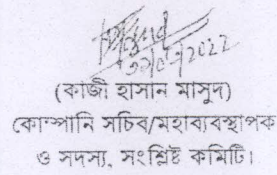 (কাজী হাসান মাসুদ)
কোম্পানি সচিব/মহাব্যবস্থাপক
ও সদস্য, সংশ্লিষ্ট কমিটি।